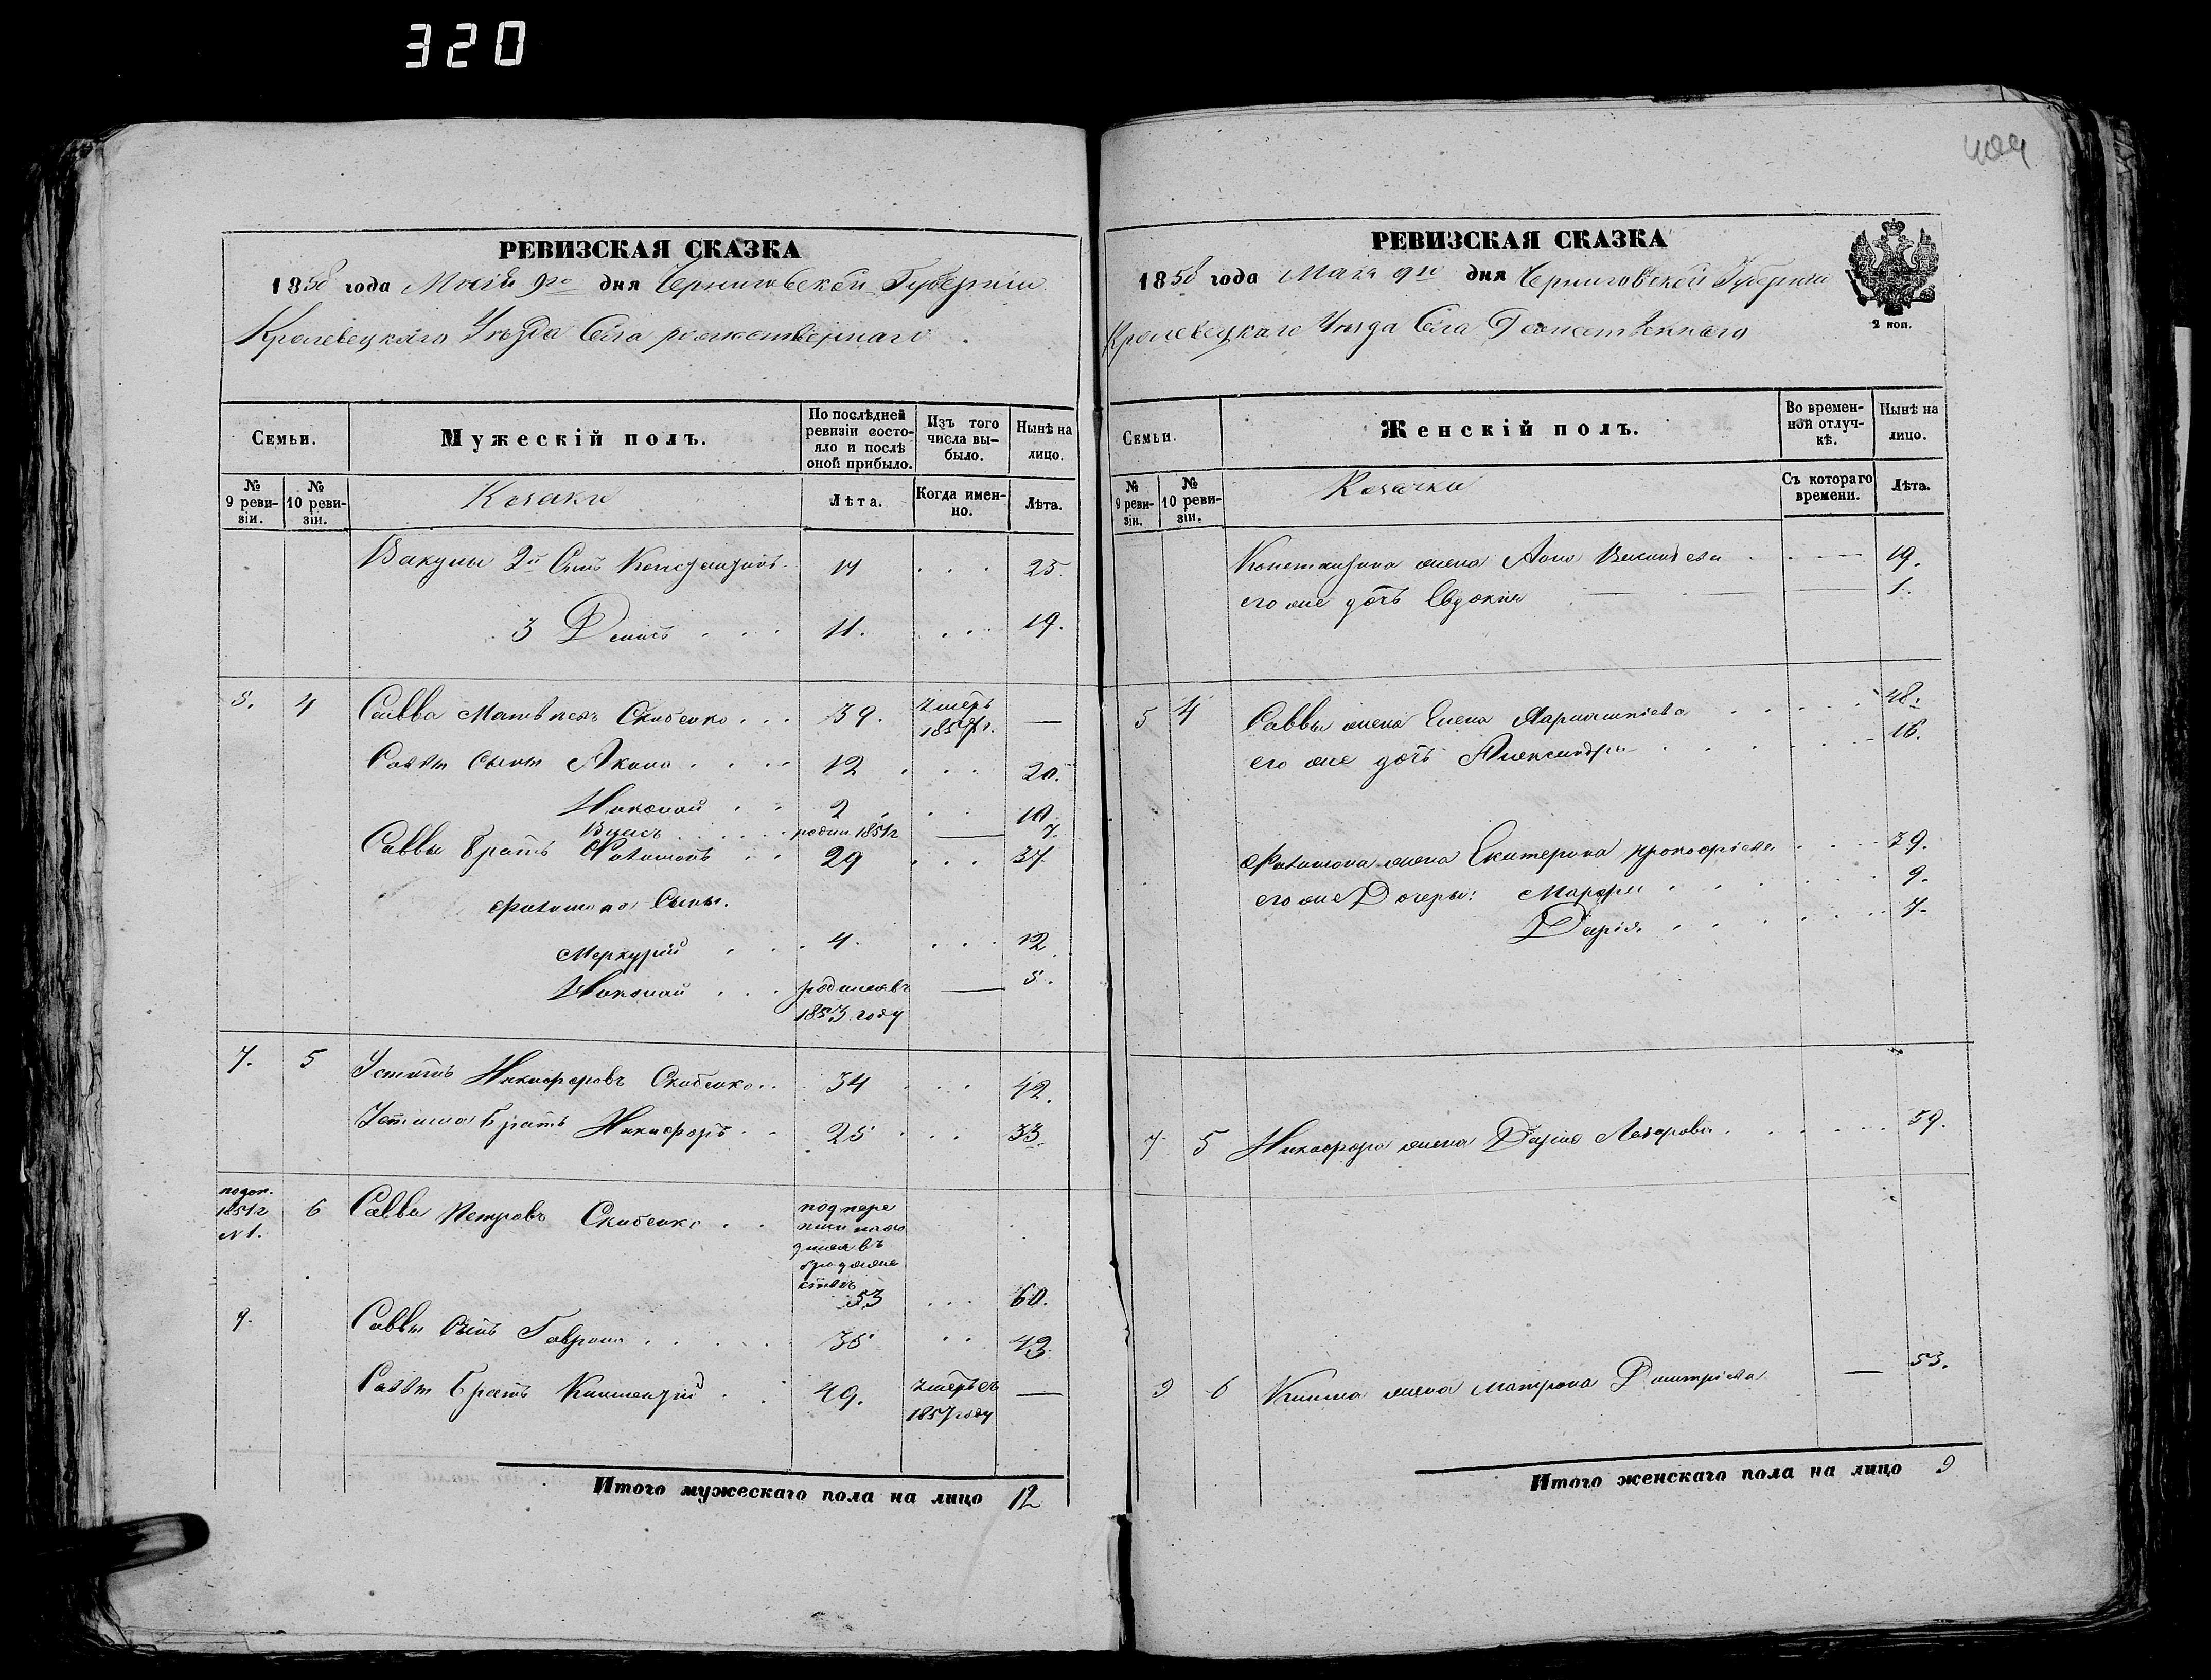 320
409
РЕВИЗСКАЯ СКАЗКА
1858 года Маія 9го дня Черниговской Губерніи
Кролевецкаго Уѣзда Села рожественнаго
Семьи.
Мужескій полъ.
По послѣдней ревизіи состояло и послѣ оной прибыло.
Изъ того числа выбыло.
Нынѣ на лицо.
№ 9 ревизіи.
№ 10 ревизіи.
Козаки
Лѣта.
Когда именно.
Лѣта.
Вакулы 2й Сынъ Константинъ 17 25.
3 Денисъ 11. 19.
5. 4 Савва Матвѣевъ Скибенко 39. умеръ 185 г. —
Саввы сынъ Яковъ 12 20.
Николай 2 10.
Власъ родил. 1851г — 7.
Саввы братъ Филимонъ 29 37
Филимона Сыны.
Меркурій 4. 12
Николай родился въ — 5.
1853 году
7. 5 Устинъ Никифоровъ Скибенко 34 42.
Устина братъ Никифоръ 25 33.
по доп. 1851г №1. 6 Савва Петровъ Скибенко
53 60.
9. Саввы Сынъ Гаврило 35 43
Саввы братъ Климентій 49. умеръ въ —
1857 году
Итого мужескаго пола на лицо 12
РЕВИЗСКАЯ СКАЗКА
1858 года Мая 9го дня Черниговской Губерніи
Кролевецкаго Уѣзда Села Рожественнаго
2 коп.
Семьи.
Женскій полъ.
Во временной отлучкѣ.
Нынѣ на лицо.
№ 9 ревизіи.
№ 10 ревизіи.
Козачки
Съ котораго времени.
Лѣта.
Константина жена Анна — 19.
его же дочь Евдокія — 1.
5 4 Саввы жена Елена 48.
его же дочь Александра 16.
Филимона жена Екатерина Прокофіева 39.
его же Дочери: Марфа 9.
Дарія 7.
7 5 Никифора жена Дарія Лазарова 59.
9 6 Клима жена Матрона Дмитріева — 53.
Итого женскаго пола на лицо 9